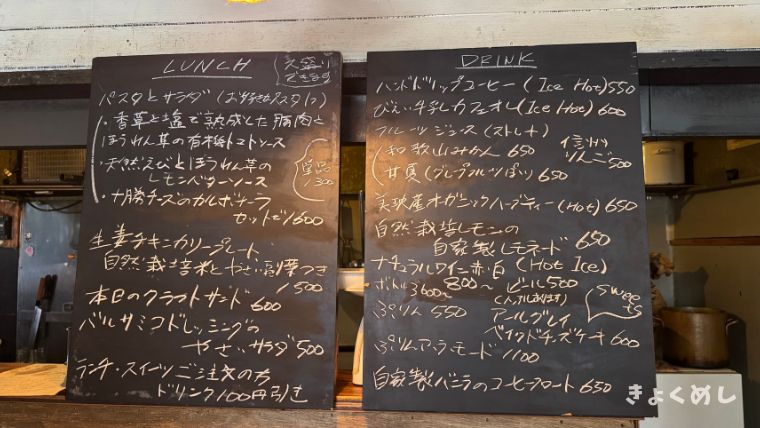 LUNCH
大盛り
できます
パスタとサラダ (お好きなパスタ1つ)
・香草と塩で熟成した豚肉と
ほうれん草の有機トマトソース
・天然えびとほうれん草の
レモンバターソース
・十勝チーズのカルボナーラ
単品
1300
セットで1600
生姜チキンカリープレート
自然栽培米とやさい副菜つき
1500
本日のクラフトサンド
600
バルサミコドレッシングの
やさいサラダ 500
ランチ・スイーツご注文の方
ドリンク100円引き
DRINK
ハンドドリップコーヒー (Ice Hot) 550
びえい牛乳カフェオレ (Ice Hot) 600
フルーツジュース (ストレート)
和歌山みかん 650
甘夏 (グレープフルーツぽい) 650
信州
りんご 500
美瑛産オーガニックハーブティー (Hot) 650
自然栽培レモンの
自家製レモネード 650
ナチュラルワイン赤・白 (Hot Ice)
ボトル 3600〜 800〜 ビール500
(ノンアルあります)
Sweets
ぷりん 550
アールグレイ
ベイクドチーズケーキ 600
ぷりんアラモード 1100
自家製バニラのコーヒーフロート 650
きょくめし